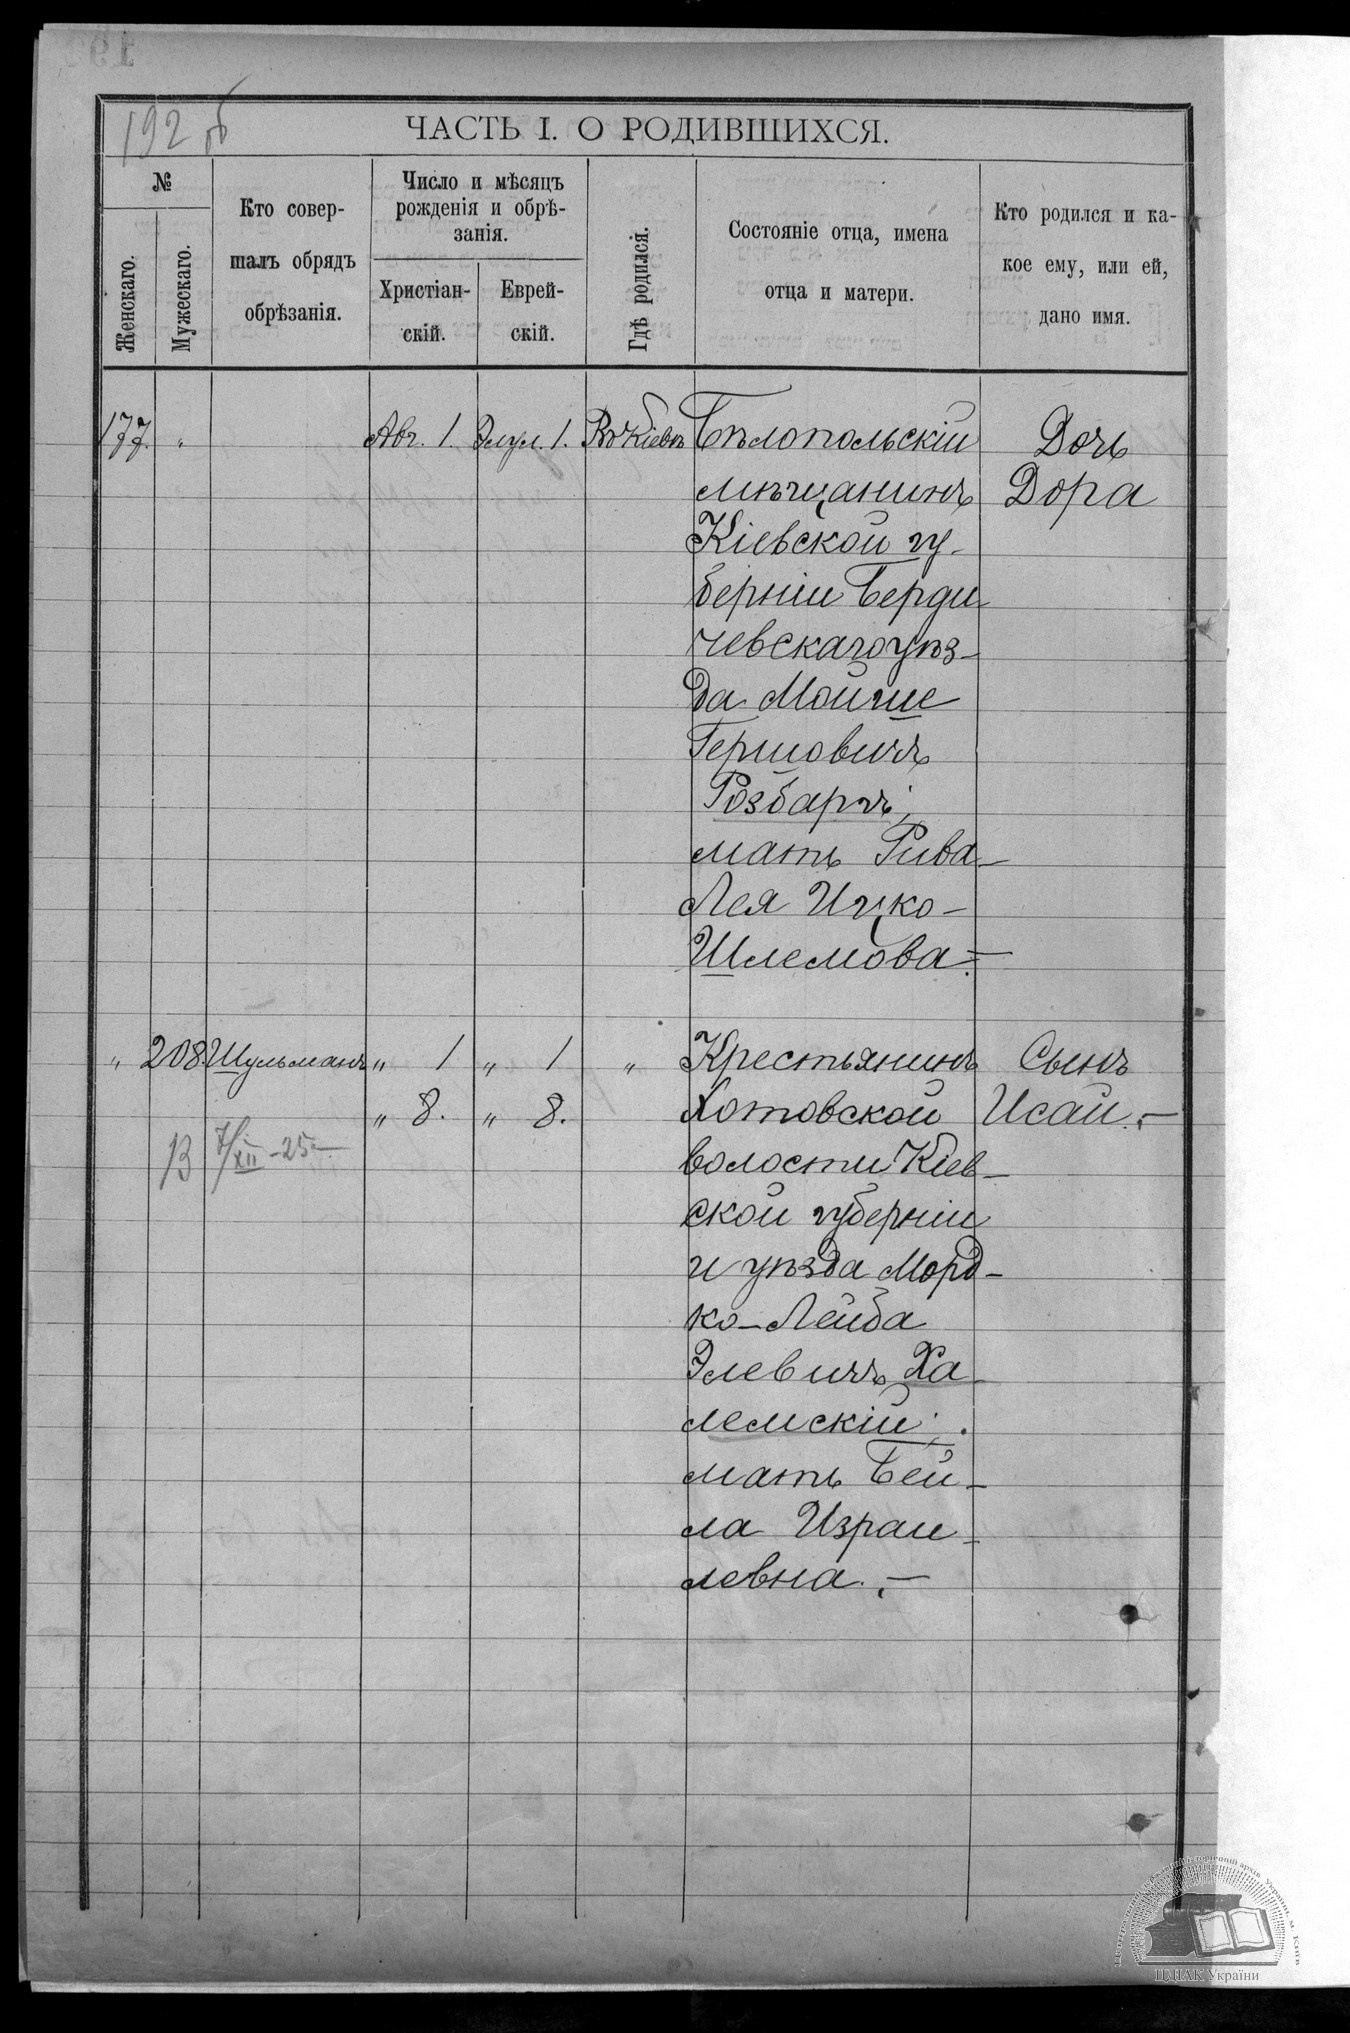 192 об
ЧАСТЬ I. О РОДИВШИХСЯ.
№
Женскаго.
Мужескаго.
Кто совер-
шалъ обрядъ
обрѣзанія.
Число и мѣсяцъ
рожденія и обрѣ-
занія.
Христіан-
скій.
Еврей-
скій.
Гдѣ родился.
Состояніе отца, имена
отца и матери.
Кто родился и ка-
кое ему, или ей,
дано имя.
177. „ Авг. 1. Элул. 1. Въ Кіевѣ Бѣлопольскій Дочь
мѣщанинъ Дора
Кіевской гу-
берніи Берди
чевскаго уѣз-
да Мойше
Гершовичъ
Розбаргъ;
мать Рива-
Лея Ицко-
Шлемова.-
„ 208. Шульманъ „ 1 „ 1 „ Крестьянинъ Сынъ
„ 8. „ 8. Хотовской Исай.-
В 7/XII-25 волости Кіев-
ской губерніи
и уѣзда Морд-
ко-Лейба
Элевичъ Ха-
лемскій;.
мать Бей-
ла Израи-
левна.-
ЦДІАК України